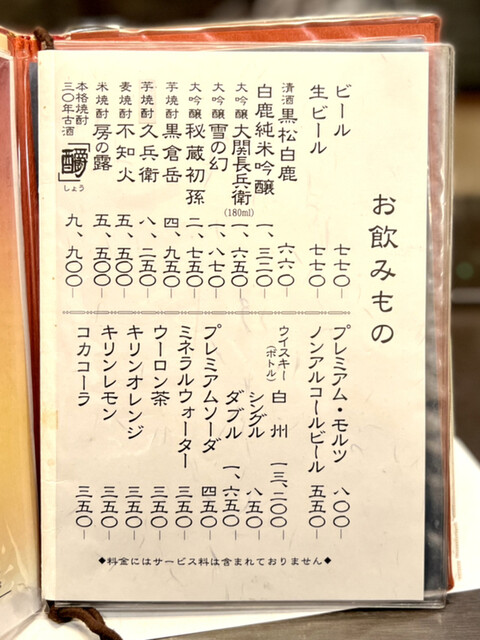 お飲みもの
ビール 七七〇―
生ビール 七七〇―
清酒 黒松白鹿 六六〇―
白鹿純米吟醸 一、三二〇―
大吟醸 大関長兵衛(180ml) 一、六五〇―
大吟醸 雪の幻 一、八七〇―
大吟醸 秘蔵初孫 二、七五〇―
芋焼酎 黒倉岳 四、九五〇―
芋焼酎 久兵衛 八、二五〇―
麦焼酎 不知火 五、五〇〇―
米焼酎 房の露 五、五〇〇―
本格焼酎 三〇年古酒 しょう 九、九〇〇―
プレミアム・モルツ 八〇〇―
ノンアルコールビール 五五〇―
ウイスキー(ボトル) 白州 一三、二〇〇―
シングル 八五〇―
ダブル 一、六五〇―
プレミアムソーダ 四五〇―
ミネラルウォーター 三五〇―
ウーロン茶 三五〇―
キリンオレンジ 三五〇―
キリンレモン 三五〇―
コカコーラ 三五〇―
◆料金にはサービス料は含まれておりません◆